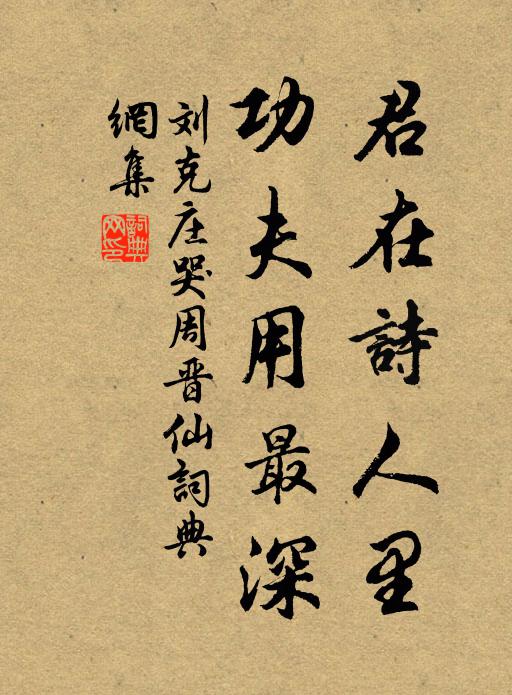 君在詩人里
功夫用最深
刘克庄哭周晋仙詞典
網集
詞典網印